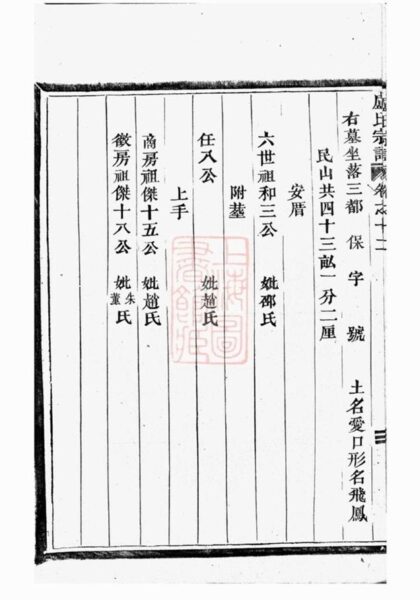 盧氏宗譜 卷之十二
右墓坐落三都 保 字 號 土名愛口形名飛鳳
民山共四十三畝一分二厘
安厝
六世祖和三公 妣邵氏
附塟
任八公 妣趙氏
上手
商房祖傑十五公 妣趙氏
徵房祖傑十八公 妣朱董氏
上海圖書館藏